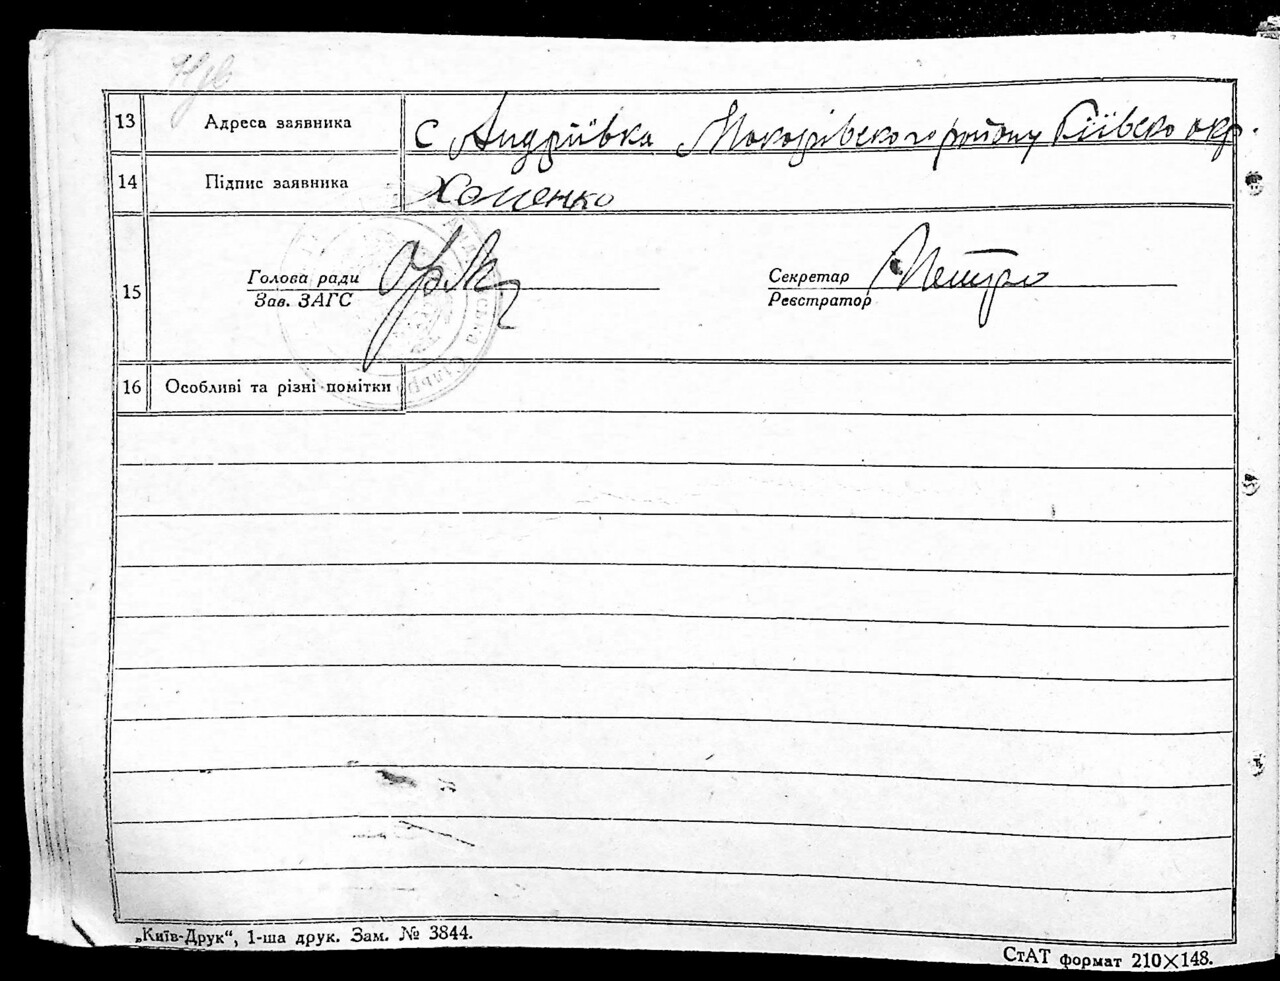 13 Адреса заявника с Андріївка Макарівского району Київско окр.
14 Підпис заявника Хоменко
15 Голова ради
Зав. ЗАГС
Секретар Петро
Реєстратор
16 Особливі та різні помітки
„Київ-Друк“, 1-ша друк. Зам. № 3844.
СтАТ формат 210×148.